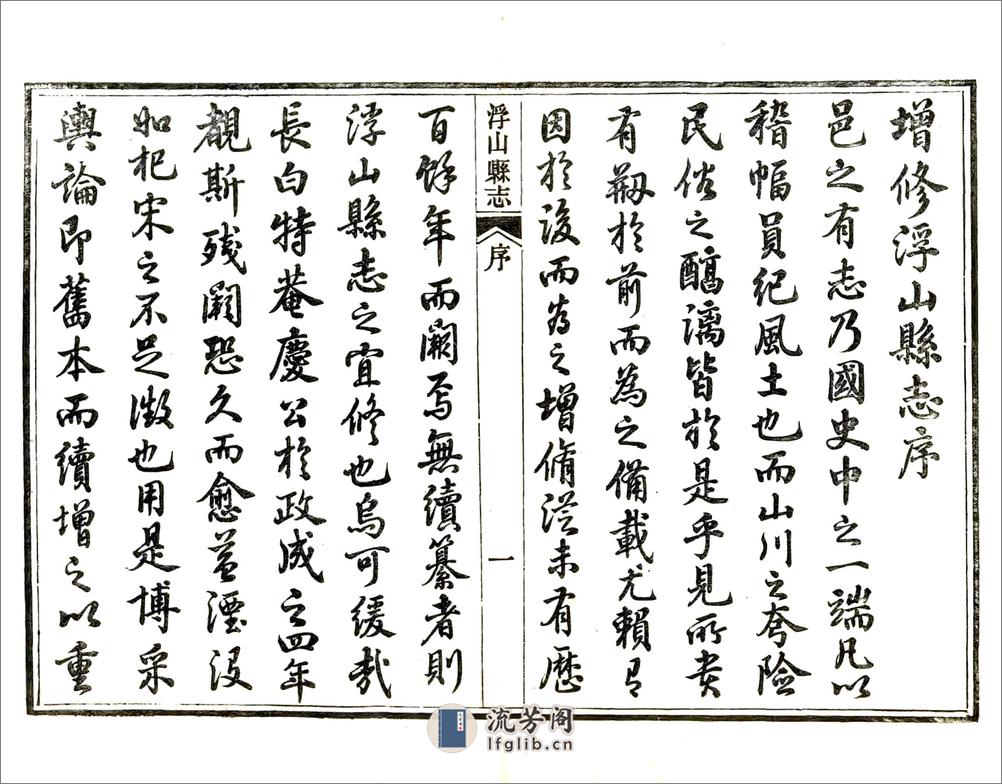 增修浮山縣志序
邑之有志乃國史中之一端凡以
稽幅員紀風土也而山川之夸險
民俗之醕漓皆於是乎見所貴
有剏於前而為之備載尤賴有
因於後而為之增脩從未有歷
浮山縣志 序 一
百餘年而闕焉無續纂者則
浮山縣志之宜修也烏可緩哉
長白特菴慶公於政成之四年
覩斯殘闕恐久而愈益湮沒
如杞宋之不足徵也用是博采
輿論即舊本而續增之以重
流芳阁
lfglib.cn